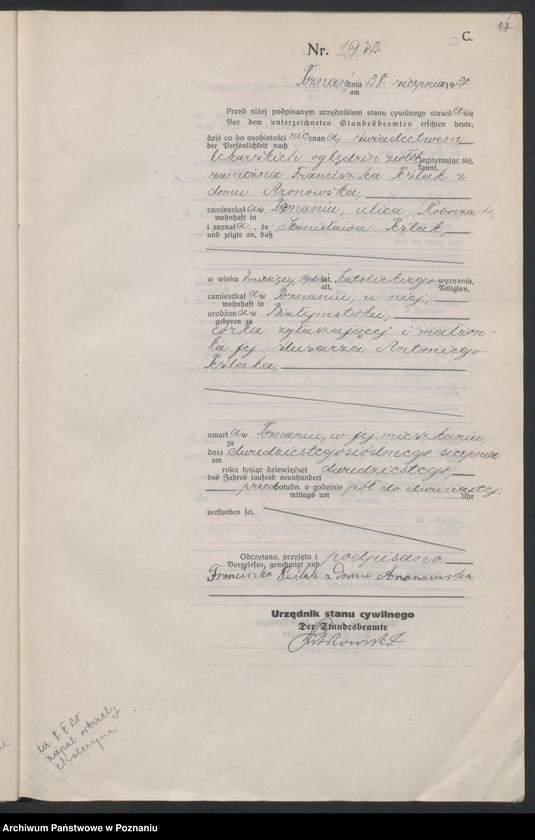 97
C.
Nr. 1932.
Poznań, dnia 28. sierpnia 1920
am
Przed niżej podpisanym urzędnikiem stanu cywilnego stawił a się
Vor dem unterzeichneten Standesbeamten erschien heute,
dziś co do osobistości nieznan a, świadectwem
der Persönlichkeit nach
lekarskich oględzin zwłok legitymując się,
kannt,
zamężna Franciszka z
domu
zamieszkał a w Poznaniu, ulica Robocza 4,
wohnhaft in
i zeznał a, że Stanisława
und zeigte an, daß
w wieku miesięcy lat, katolickiego wyznania,
alt, Religion,
zamieszkał a w Poznaniu, u niej,
wohnhaft in
urodzon a w Białymstoku,
geboren zu
córka zgłaszającej i małżon-
ka jej ślusarza Antoniego
umarł a w Poznaniu, w jej mieszkaniu,
zu
dnia dwudziestegosiódmego sierpnia
am
roku tysiąc dziewięćset dwudziestego,
des Jahres tausend neunhundert
przed połudn. o godzinie pół do dwunastej.
mittags um Uhr
verstorben sei.
Odczytano, przyjęto i podpisano
Vorgelesen, genehmigt und
Franciszka z domu
Urzędnik stanu cywilnego
Der Standesbeamte
zapal
Archiwum Państwowe w Poznaniu